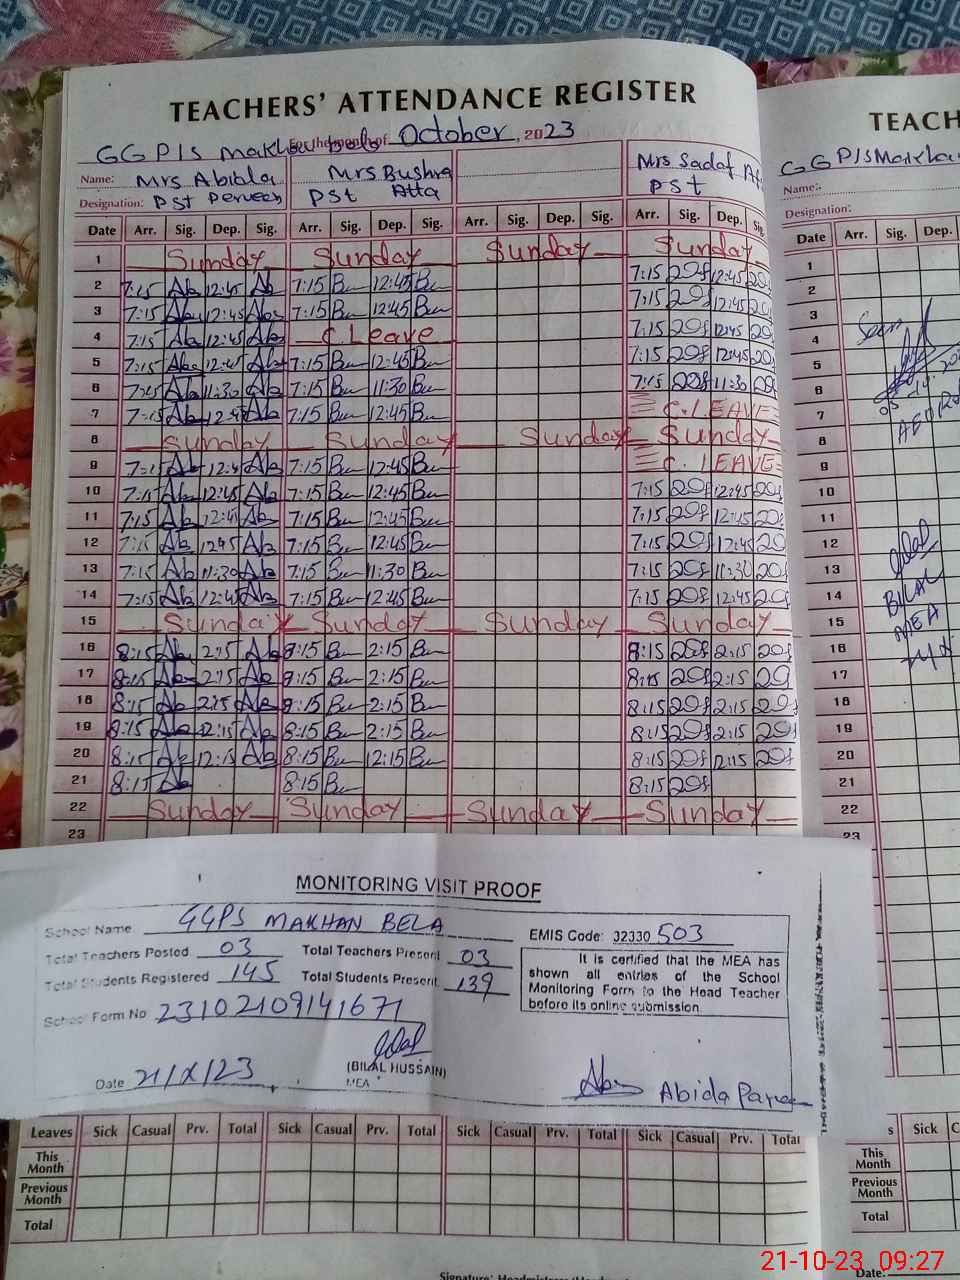 TEACHERS' ATTENDANCE REGISTER
GGP/S Makhan bela For the month of October, 2023
Name: Mrs Abida Mrs Bushra Mrs Sadaf
Designation: PST Perveen PSt Atta PST
Date Arr. Sig. Dep. Sig. Arr. Sig. Dep. Sig. Arr. Sig. Dep. Sig. Arr. Sig. Dep. Sig.
1 Sunday Sunday Sunday Sunday
2 7:15 Ab 12:45 Ab 7:15 Bu 12:45 Bu 7:15 12:45
3 7:15 Ab 12:45 Ab 7:15 Bu 12:45 Bu 7:15 12:45
4 7:15 Ab 12:45 Ab C.Leave 7:15 12:45
5 7:15 Ab 12:45 Ab 7:15 Bu 12:45 Bu 7:15 12:45
6 7:15 Ab 11:30 Ab 7:15 Bu 11:30 Bu 7:15 11:30
7 7:15 Ab 12:45 Ab 7:15 Bu 12:45 Bu C.LEAVE
8 Sunday Sunday Sunday Sunday
9 7:15 Ab 12:4 Ab 7:15 Bu 12:45 Bu C. LEAVE
10 7:15 Ab 12:45 Ab 7:15 Bu 12:45 Bu 7:15 12:45
11 7:15 Ab 12:45 Ab 7:15 Bu 12:45 Bu 7:15 12:45
12 7:15 Ab 12:45 Ab 7:15 Bu 12:45 Bu 7:15 12:45
13 7:15 Ab 11:30 Ab 7:15 Bu 11:30 Bu 7:15 11:30
14 7:15 Ab 12:45 Ab 7:15 Bu 12:45 Bu 7:15 12:45
15 Sunday Sunday Sunday Sunday
16 8:15 Ab 2:15 Ab 8:15 Bu 2:15 Bu 8:15 2:15
17 8:15 Ab 2:15 Ab 8:15 Bu 2:15 Bu 8:15 2:15
18 8:15 Ab 2:15 Ab 8:15 Bu 2:15 Bu 8:15 2:15
19 8:15 Ab 12:15 Ab 8:15 Bu 2:15 Bu 8:15 2:15
20 8:15 Ab 12:15 Ab 8:15 Bu 12:15 Bu 8:15 12:15
21 8:15 Ab 8:15 Bu 8:15
22 Sunday Sunday Sunday Sunday
23
MONITORING VISIT PROOF
School Name GGPS MAKHAN BELA
EMIS Code: 32330 503
Total Teachers Posted 03 Total Teachers Present 03
Total Students Registered 145 Total Students Present 139
School Form No 23102109141671
It is certified that the MEA has
shown all entries of the School
Monitoring Form to the Head Teacher
before its online submission.
(BILAL HUSSAIN)
MEA
Date 21/X/23
Abida
Leaves Sick Casual Prv. Total Sick Casual Prv. Total Sick Casual Prv. Total Sick Casual Prv. Total
This
Month
Previous
Month
Total
TEACH
GGP/S Makha
Name:
Designation:
Date Arr. Sig. Dep.
1
2
3
4 Seen
5
6
7 AEO
8
9
10
11
12
13
14 BILAL
15 MEA
16
17
18
19
20
21
22
23
s Sick C
This
Month
Previous
Month
Total
Date:
21-10-23 09:27